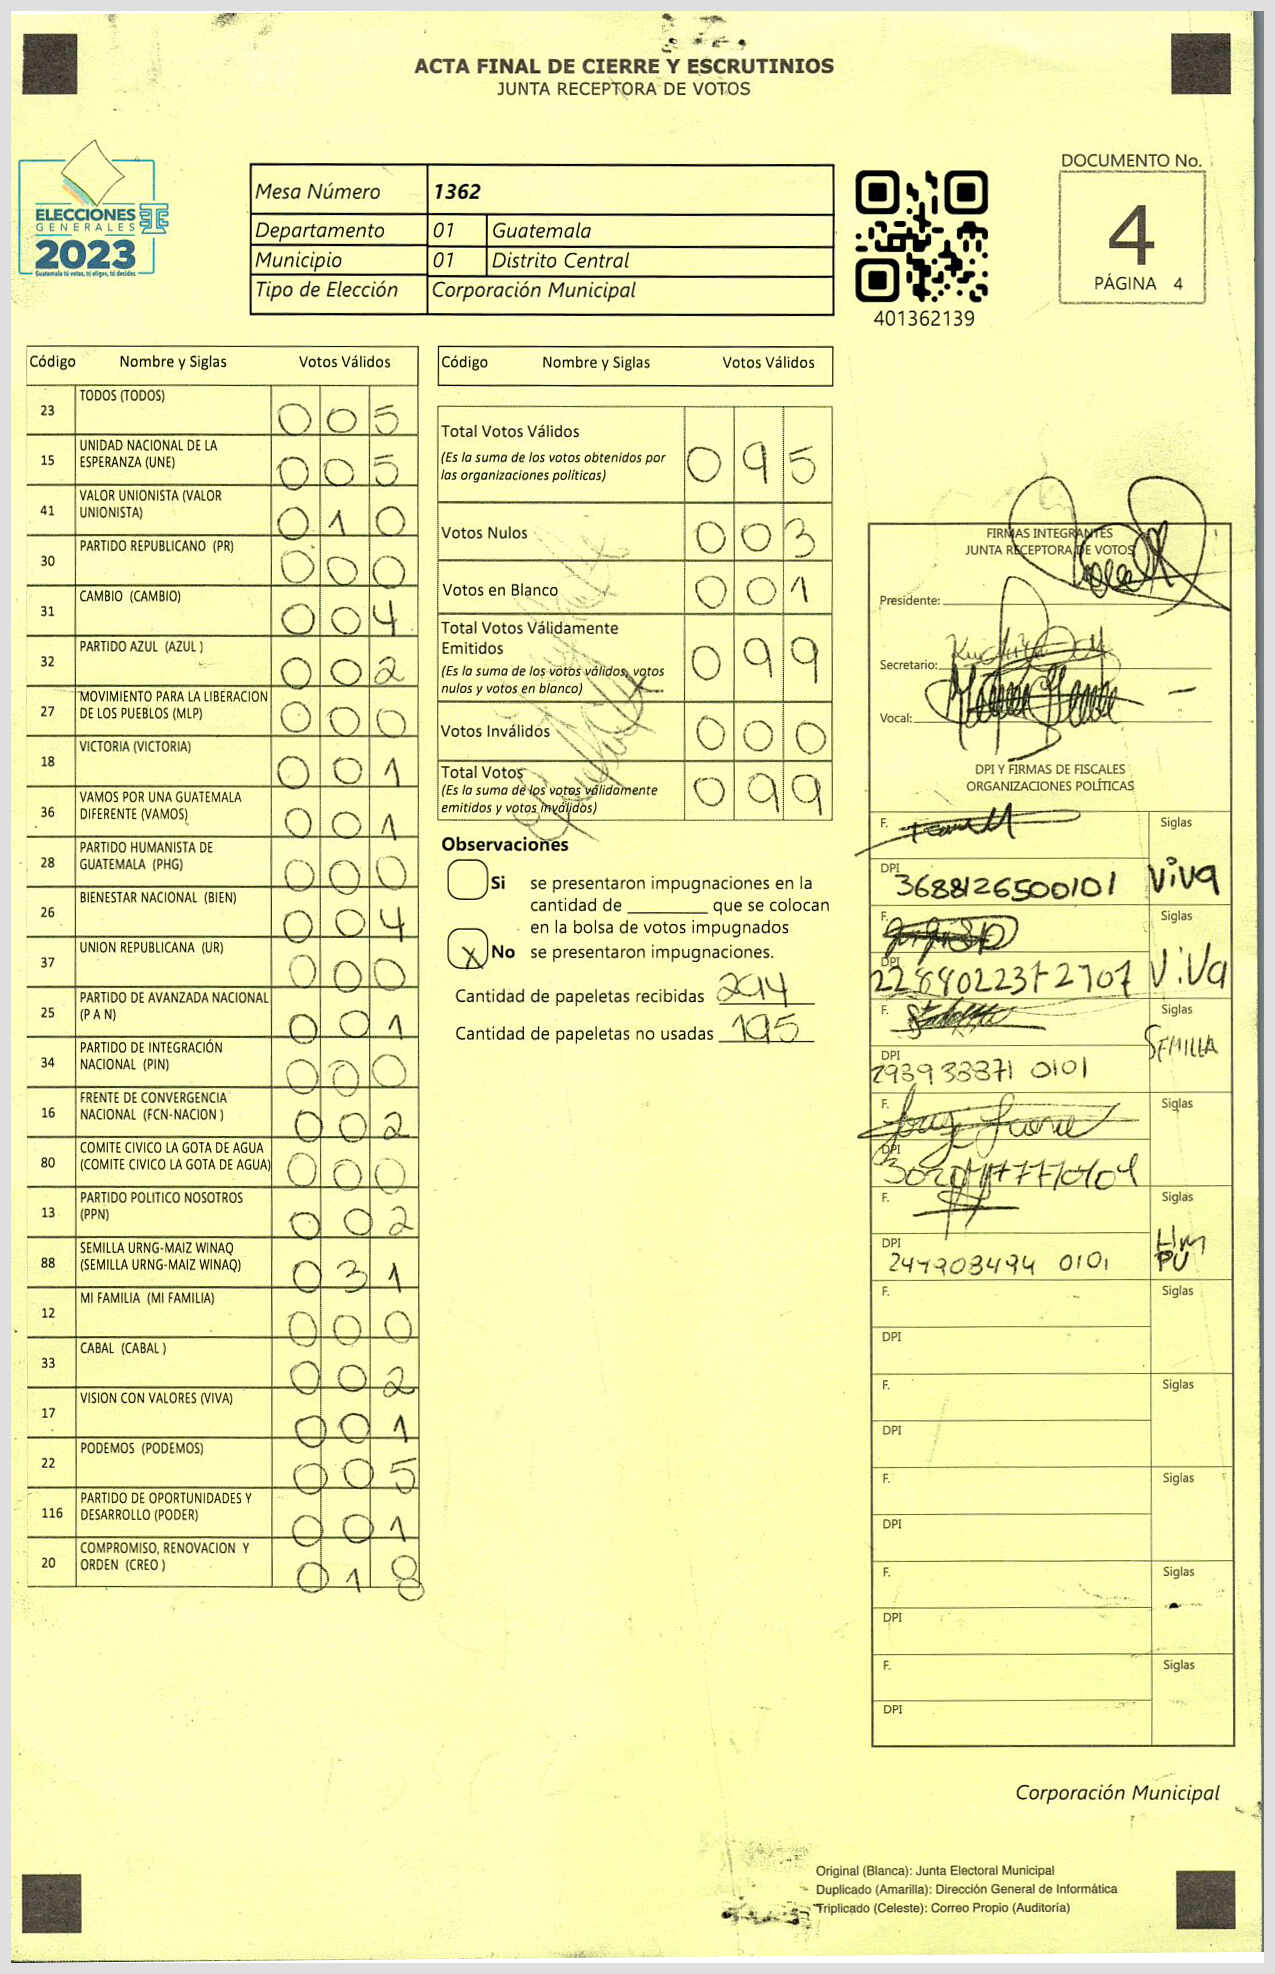 ACTA FINAL DE CIERRE Y ESCRUTINIOS
JUNTA RECEPTORA DE VOTOS
ELECCIONES
GENERALES
2023
Guatemala tú votas, tú eliges, tú decides
Mesa Número 1362
Departamento 01 Guatemala
Municipio 01 Distrito Central
Tipo de Elección Corporación Municipal
401362139
DOCUMENTO No.
4
PÁGINA 4
Código Nombre y Siglas Votos Válidos
23 TODOS (TODOS) 0 0 5
15 UNIDAD NACIONAL DE LA
ESPERANZA (UNE) 0 0 5
41 VALOR UNIONISTA (VALOR
UNIONISTA) 0 1 0
30 PARTIDO REPUBLICANO (PR) 0 0 0
31 CAMBIO (CAMBIO) 0 0 4
32 PARTIDO AZUL (AZUL ) 0 0 2
27 MOVIMIENTO PARA LA LIBERACION
DE LOS PUEBLOS (MLP) 0 0 0
18 VICTORIA (VICTORIA) 0 0 1
36 VAMOS POR UNA GUATEMALA
DIFERENTE (VAMOS) 0 0 1
28 PARTIDO HUMANISTA DE
GUATEMALA (PHG) 0 0 0
26 BIENESTAR NACIONAL (BIEN) 0 0 4
37 UNION REPUBLICANA (UR) 0 0 0
25 PARTIDO DE AVANZADA NACIONAL
(P A N) 0 0 1
34 PARTIDO DE INTEGRACIÓN
NACIONAL (PIN) 0 0 0
16 FRENTE DE CONVERGENCIA
NACIONAL (FCN-NACION ) 0 0 2
80 COMITE CIVICO LA GOTA DE AGUA
(COMITE CIVICO LA GOTA DE AGUA) 0 0 0
13 PARTIDO POLITICO NOSOTROS
(PPN) 0 0 2
88 SEMILLA URNG-MAIZ WINAQ
(SEMILLA URNG-MAIZ WINAQ) 0 3 1
12 MI FAMILIA (MI FAMILIA) 0 0 0
33 CABAL (CABAL ) 0 0 2
17 VISION CON VALORES (VIVA) 0 0 1
22 PODEMOS (PODEMOS) 0 0 5
116 PARTIDO DE OPORTUNIDADES Y
DESARROLLO (PODER) 0 0 1
20 COMPROMISO, RENOVACION Y
ORDEN (CREO ) 0 1 8
Código Nombre y Siglas Votos Válidos
Total Votos Válidos 0 9 5
(Es la suma de los votos obtenidos por
las organizaciones políticas)
Votos Nulos 0 0 3
Votos en Blanco 0 0 1
Total Votos Válidamente
Emitidos 0 9 9
(Es la suma de los votos válidos, votos
nulos y votos en blanco)
Votos Inválidos 0 0 0
Total Votos 0 9 9
(Es la suma de los votos válidamente
emitidos y votos inválidos)
Observaciones
Si se presentaron impugnaciones en la
cantidad de ________ que se colocan
en la bolsa de votos impugnados
X No se presentaron impugnaciones.
Cantidad de papeletas recibidas 294
Cantidad de papeletas no usadas 195
FIRMAS INTEGRANTES
JUNTA RECEPTORA DE VOTOS
Presidente:
Secretario:
Vocal:
DPI Y FIRMAS DE FISCALES
ORGANIZACIONES POLÍTICAS
F. Siglas
DPI 3688126500101 VIVA
F. Siglas
DPI 2288402237 2707 VIVA
F. Siglas
DPI 293933371 0101 SEMILLA
F. Siglas
DPI
F. Siglas
DPI 247903494 0101
F. Siglas
DPI
F. Siglas
DPI
F. Siglas
DPI
F. Siglas
DPI
F. Siglas
DPI
Corporación Municipal
Original (Blanca): Junta Electoral Municipal
Duplicado (Amarilla): Dirección General de Informática
Triplicado (Celeste): Correo Propio (Auditoría)